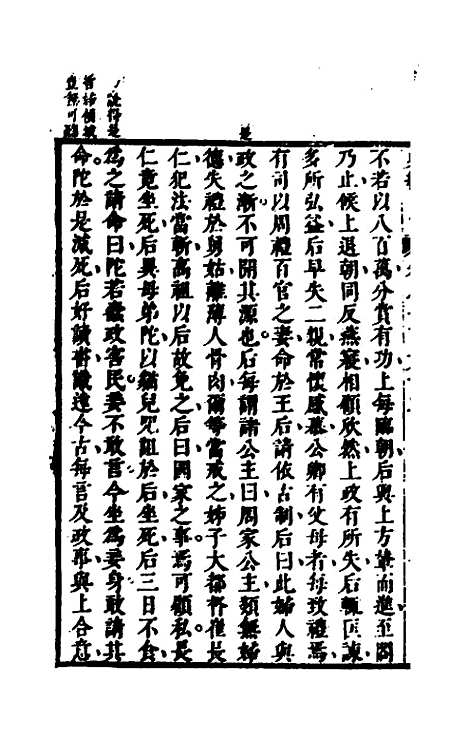 不若以八百萬分賞有功上每臨朝后與上方輦而進至閤
乃止候上退朝同反燕寢相顧欣然上政有所失后輒匡諫
多所弘益后早失二親常懷感慕公卿有父母者每致禮焉
有司以周禮百官之妻命於王后請依古制后曰此婦人與
政之漸不可開其源也后每謂諸公主曰周家公主類無婦
德失禮於舅姑離薄人骨肉爾等當戒之姊子大都督崔長
仁犯法當斬高祖以后故免之后曰國家之事焉可顧私長
仁竟坐死后異母弟陀以貓鬼咒詛於后坐死后三日不食
爲之請命曰陀若蠹政害民妾不敢言今坐爲妾身敢請其
命陀於是減死后好讀書識達今古每言及政事與上合意
是